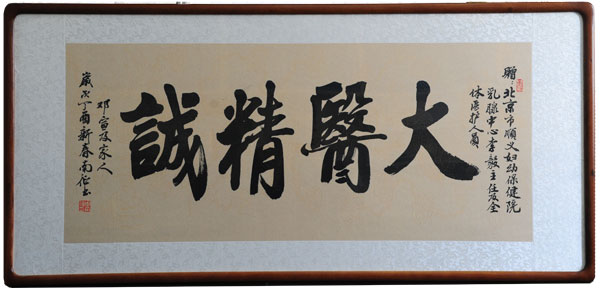 贈：北京市順义妇幼保健院
乳腺中心李毅主任及全
体医护人員
大醫精誠
邓宣及家人
歲次丁酉新春南作書